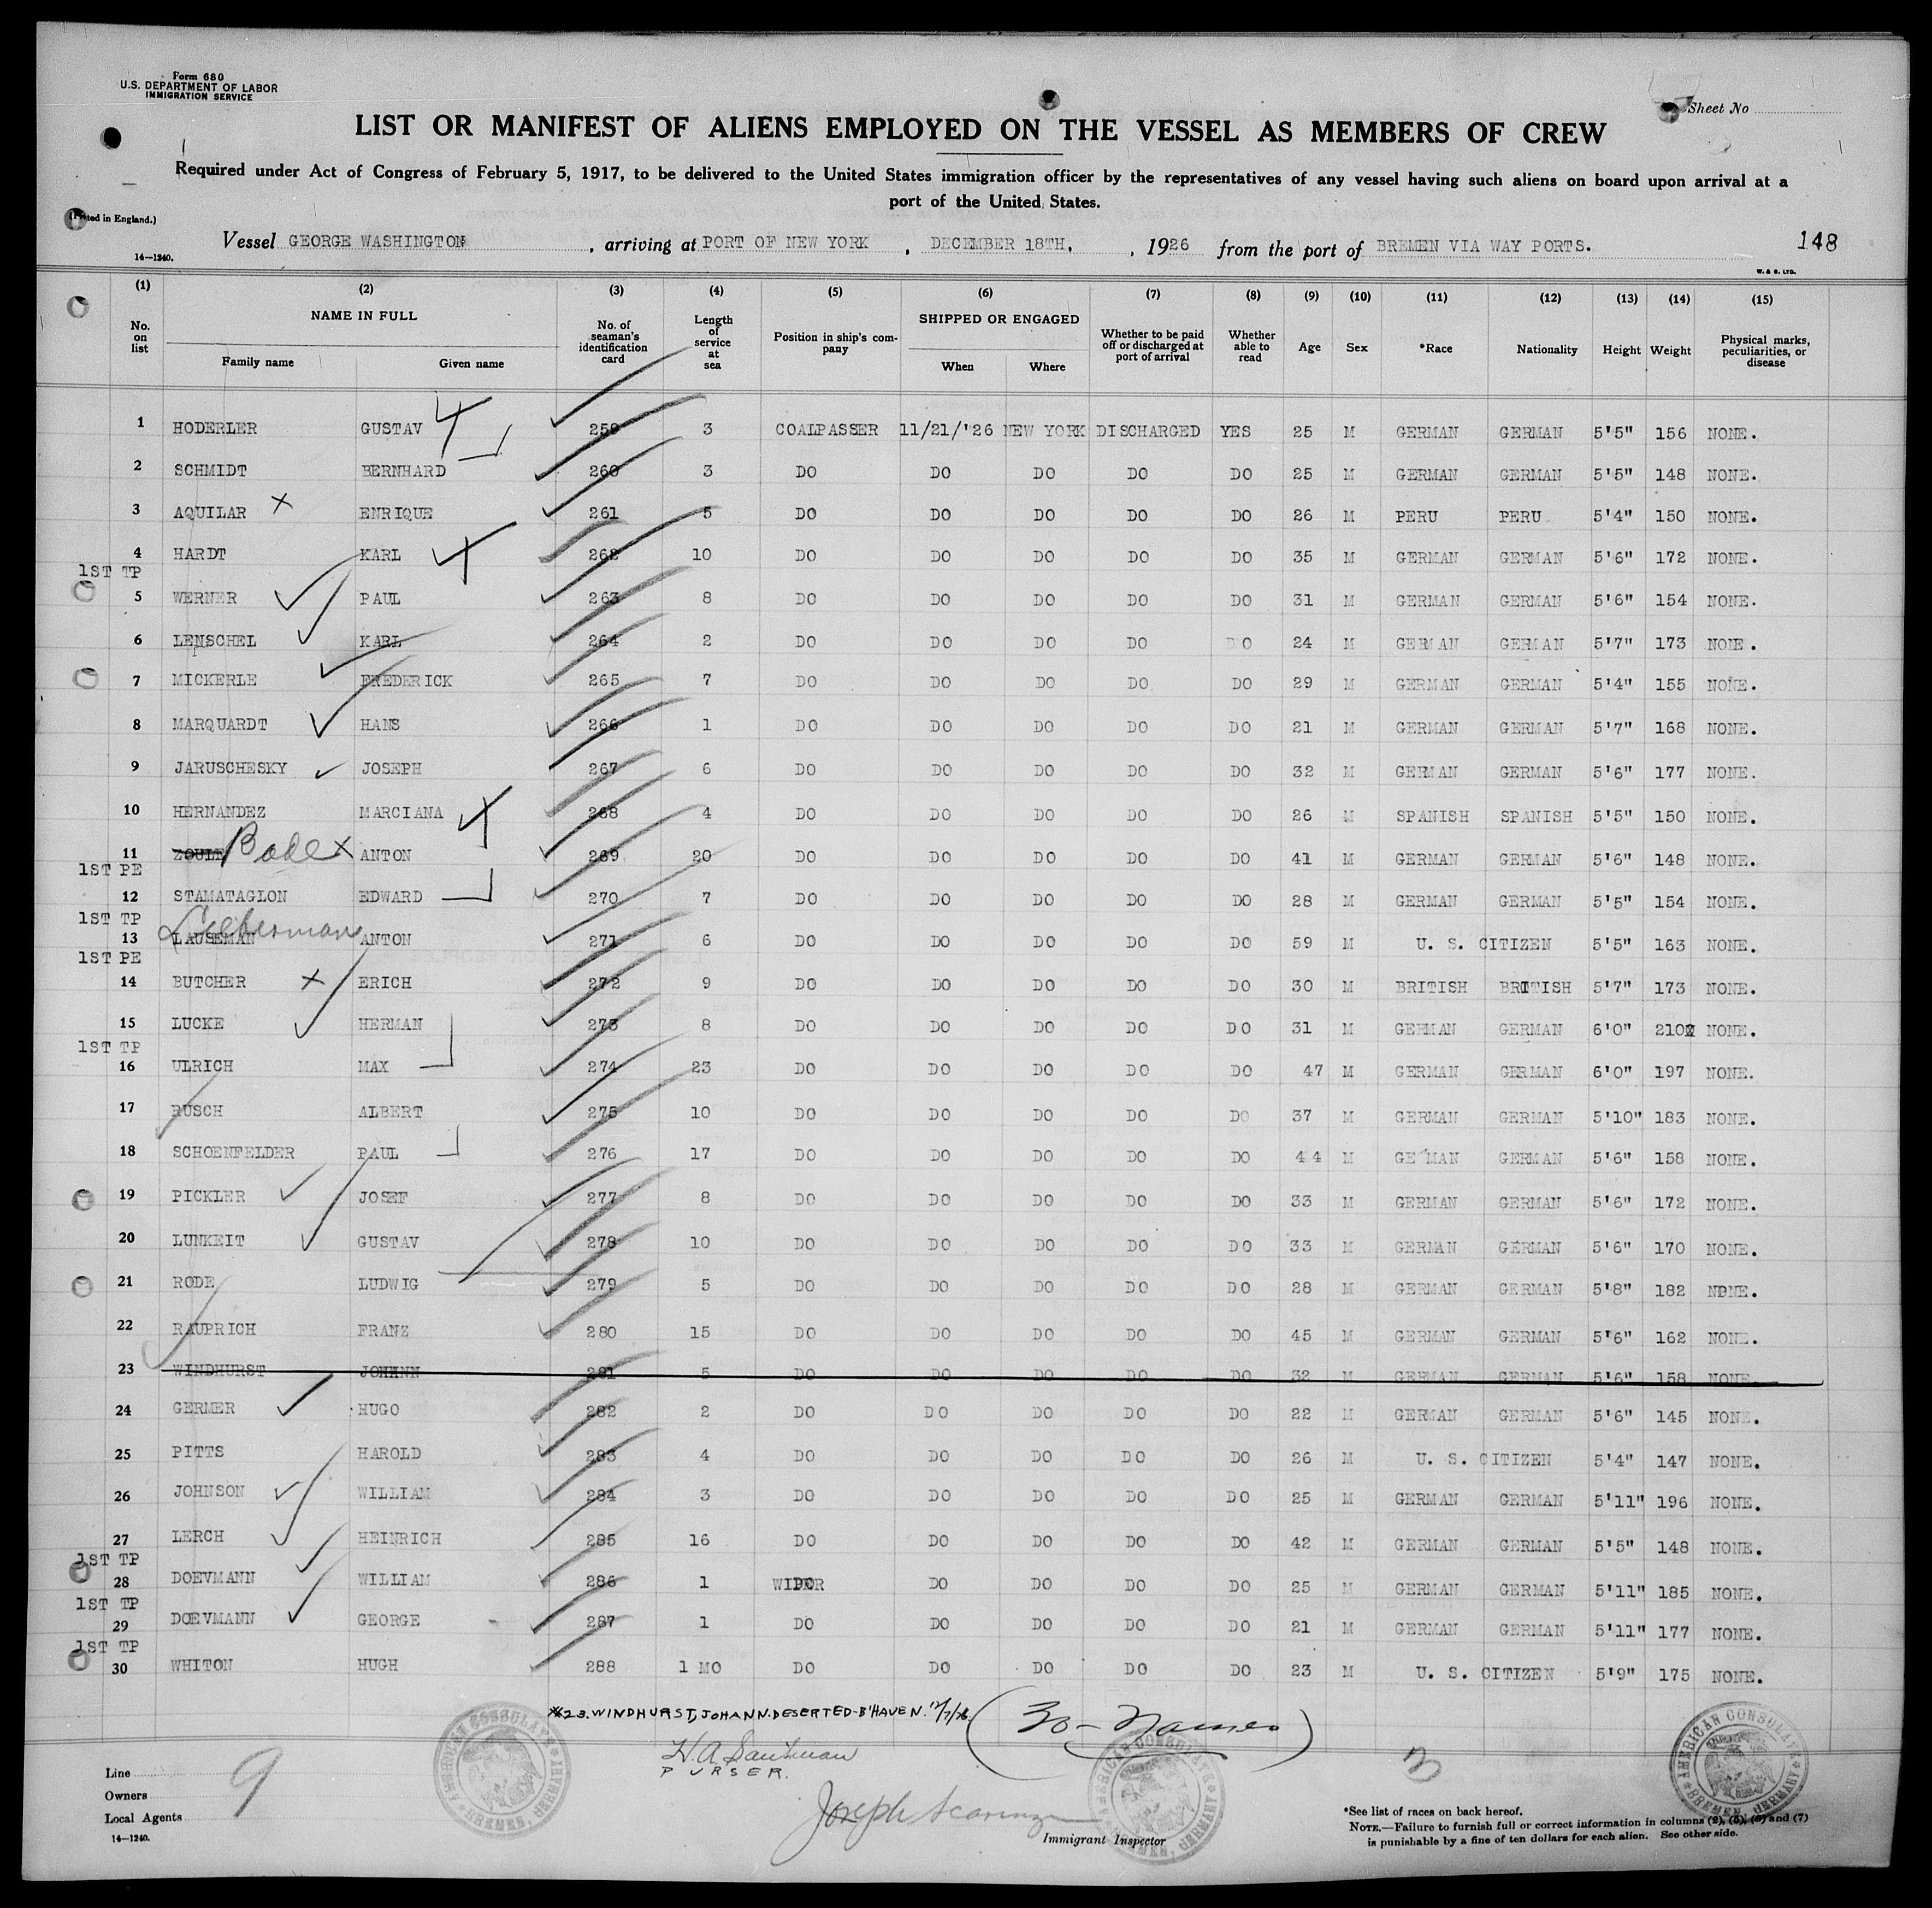 Form 680
U.S. DEPARTMENT OF LABOR
IMMIGRATION SERVICE
Sheet No
LIST OR MANIFEST OF ALIENS EMPLOYED ON THE VESSEL AS MEMBERS OF CREW
Required under Act of Congress of February 5, 1917, to be delivered to the United States immigration officer by the representatives of any vessel having such aliens on board upon arrival at a
port of the United States.
(Printed in England.)
Vessel GEORGE WASHINGTON, arriving at PORT OF NEW YORK, DECEMBER 18TH, , 1926 from the port of BREMEN VIA WAY PORTS. 148
14—1240. W. & S. LTD.
(1) (2) (3) (4) (5) (6) (7) (8) (9) (10) (11) (12) (13) (14) (15)
No. on list NAME IN FULL Family name Given name No. of seaman's identification card Length of service at sea Position in ship's company SHIPPED OR ENGAGED When Where Whether to be paid off or discharged at port of arrival Whether able to read Age Sex *Race Nationality Height Weight Physical marks, peculiarities, or disease
1 HODERLER GUSTAV 259 3 COALPASSER 11/21/'26 NEW YORK DISCHARGED YES 25 M GERMAN GERMAN 5'5" 156 NONE.
2 SCHMIDT BERNHARD 260 3 DO DO DO DO DO 25 M GERMAN GERMAN 5'5" 148 NONE.
3 AQUILAR ENRIQUE 261 5 DO DO DO DO DO 26 M PERU PERU 5'4" 150 NONE.
4 HARDT KARL 262 10 DO DO DO DO DO 35 M GERMAN GERMAN 5'6" 172 NONE.
1ST TP
5 WERNER PAUL 263 8 DO DO DO DO DO 31 M GERMAN GERMAN 5'6" 154 NONE.
6 LENSCHEL KARL 264 2 DO DO DO DO DO 24 M GERMAN GERMAN 5'7" 173 NONE.
7 MICKERLE FREDERICK 265 7 DO DO DO DO DO 29 M GERMAN GERMAN 5'4" 155 NONE.
8 MARQUARDT HANS 266 1 DO DO DO DO DO 21 M GERMAN GERMAN 5'7" 168 NONE.
9 JARUSCHESKY JOSEPH 267 6 DO DO DO DO DO 32 M GERMAN GERMAN 5'6" 177 NONE.
10 HERNANDEZ MARCIANA 268 4 DO DO DO DO DO 26 M SPANISH SPANISH 5'5" 150 NONE.
11 Bode ANTON 269 20 DO DO DO DO DO 41 M GERMAN GERMAN 5'6" 148 NONE.
1ST PE
12 STAMATAGLON EDWARD 270 7 DO DO DO DO DO 28 M GERMAN GERMAN 5'5" 154 NONE.
1ST TP Lieberman
13 LAUSEMAN ANTON 271 6 DO DO DO DO DO 59 M U. S. CITIZEN 5'5" 163 NONE.
1ST PE
14 BUTCHER ERICH 272 9 DO DO DO DO DO 30 M BRITISH BRITISH 5'7" 173 NONE.
15 LUCKE HERMAN 273 8 DO DO DO DO DO 31 M GERMAN GERMAN 6'0" 210 NONE.
1ST TP
16 ULRICH MAX 274 23 DO DO DO DO DO 47 M GERMAN GERMAN 6'0" 197 NONE.
17 RUSCH ALBERT 275 10 DO DO DO DO DO 37 M GERMAN GERMAN 5'10" 183 NONE.
18 SCHOENFELDER PAUL 276 17 DO DO DO DO DO 44 M GE MAN GERMAN 5'6" 158 NONE.
19 PICKLER JOSEF 277 8 DO DO DO DO DO 33 M GERMAN GERMAN 5'6" 172 NONE.
20 LUNKEIT GUSTAV 278 10 DO DO DO DO DO 33 M GERMAN GERMAN 5'6" 170 NONE.
21 RODE LUDWIG 279 5 DO DO DO DO DO 28 M GERMAN GERMAN 5'8" 182 NONE.
22 RAUPRICH FRANZ 280 15 DO DO DO DO DO 45 M GERMAN GERMAN 5'6" 162 NONE.
23 WINDHURST JOHANN 281 5 DO DO DO DO DO 32 M GERMAN GERMAN 5'6" 158 NONE
24 GERMER HUGO 282 2 DO DO DO DO DO 22 M GERMAN GERMAN 5'6" 145 NONE.
25 PITTS HAROLD 283 4 DO DO DO DO DO 26 M U. S. CITIZEN 5'4" 147 NONE.
26 JOHNSON WILLIAM 284 3 DO DO DO DO DO 25 M GERMAN GERMAN 5'11" 196 NONE.
27 LERCH HEINRICH 285 16 DO DO DO DO DO 42 M GERMAN GERMAN 5'5" 148 NONE.
1ST TP
28 DOEVMANN WILLIAM 286 1 WIPER DO DO DO DO 25 M GERMAN GERMAN 5'11" 185 NONE.
1ST TP
29 DOEVMANN GEORGE 287 1 DO DO DO DO DO 21 M GERMAN GERMAN 5'11" 177 NONE.
1ST TP
30 WHITON HUGH 288 1 MO DO DO DO DO DO 23 M U. S. CITIZEN 5'9" 175 NONE.
#23. WINDHURST, JOHANN. DESERTED-B'HAVEN. 12/7/26. (30 - Names)
PURSER.
Line
Owners
Local Agents
14—1240.
9
Joseph
Immigrant Inspector
AMERICAN CONSULATE BREMEN, GERMANY
AMERICAN CONSULATE BREMEN, GERMANY
AMERICAN CONSULATE BREMEN, GERMANY
*See list of races on back hereof.
NOTE.—Failure to furnish full or correct information in columns (2), (5), (6) and (7)
is punishable by a fine of ten dollars for each alien. See other side.